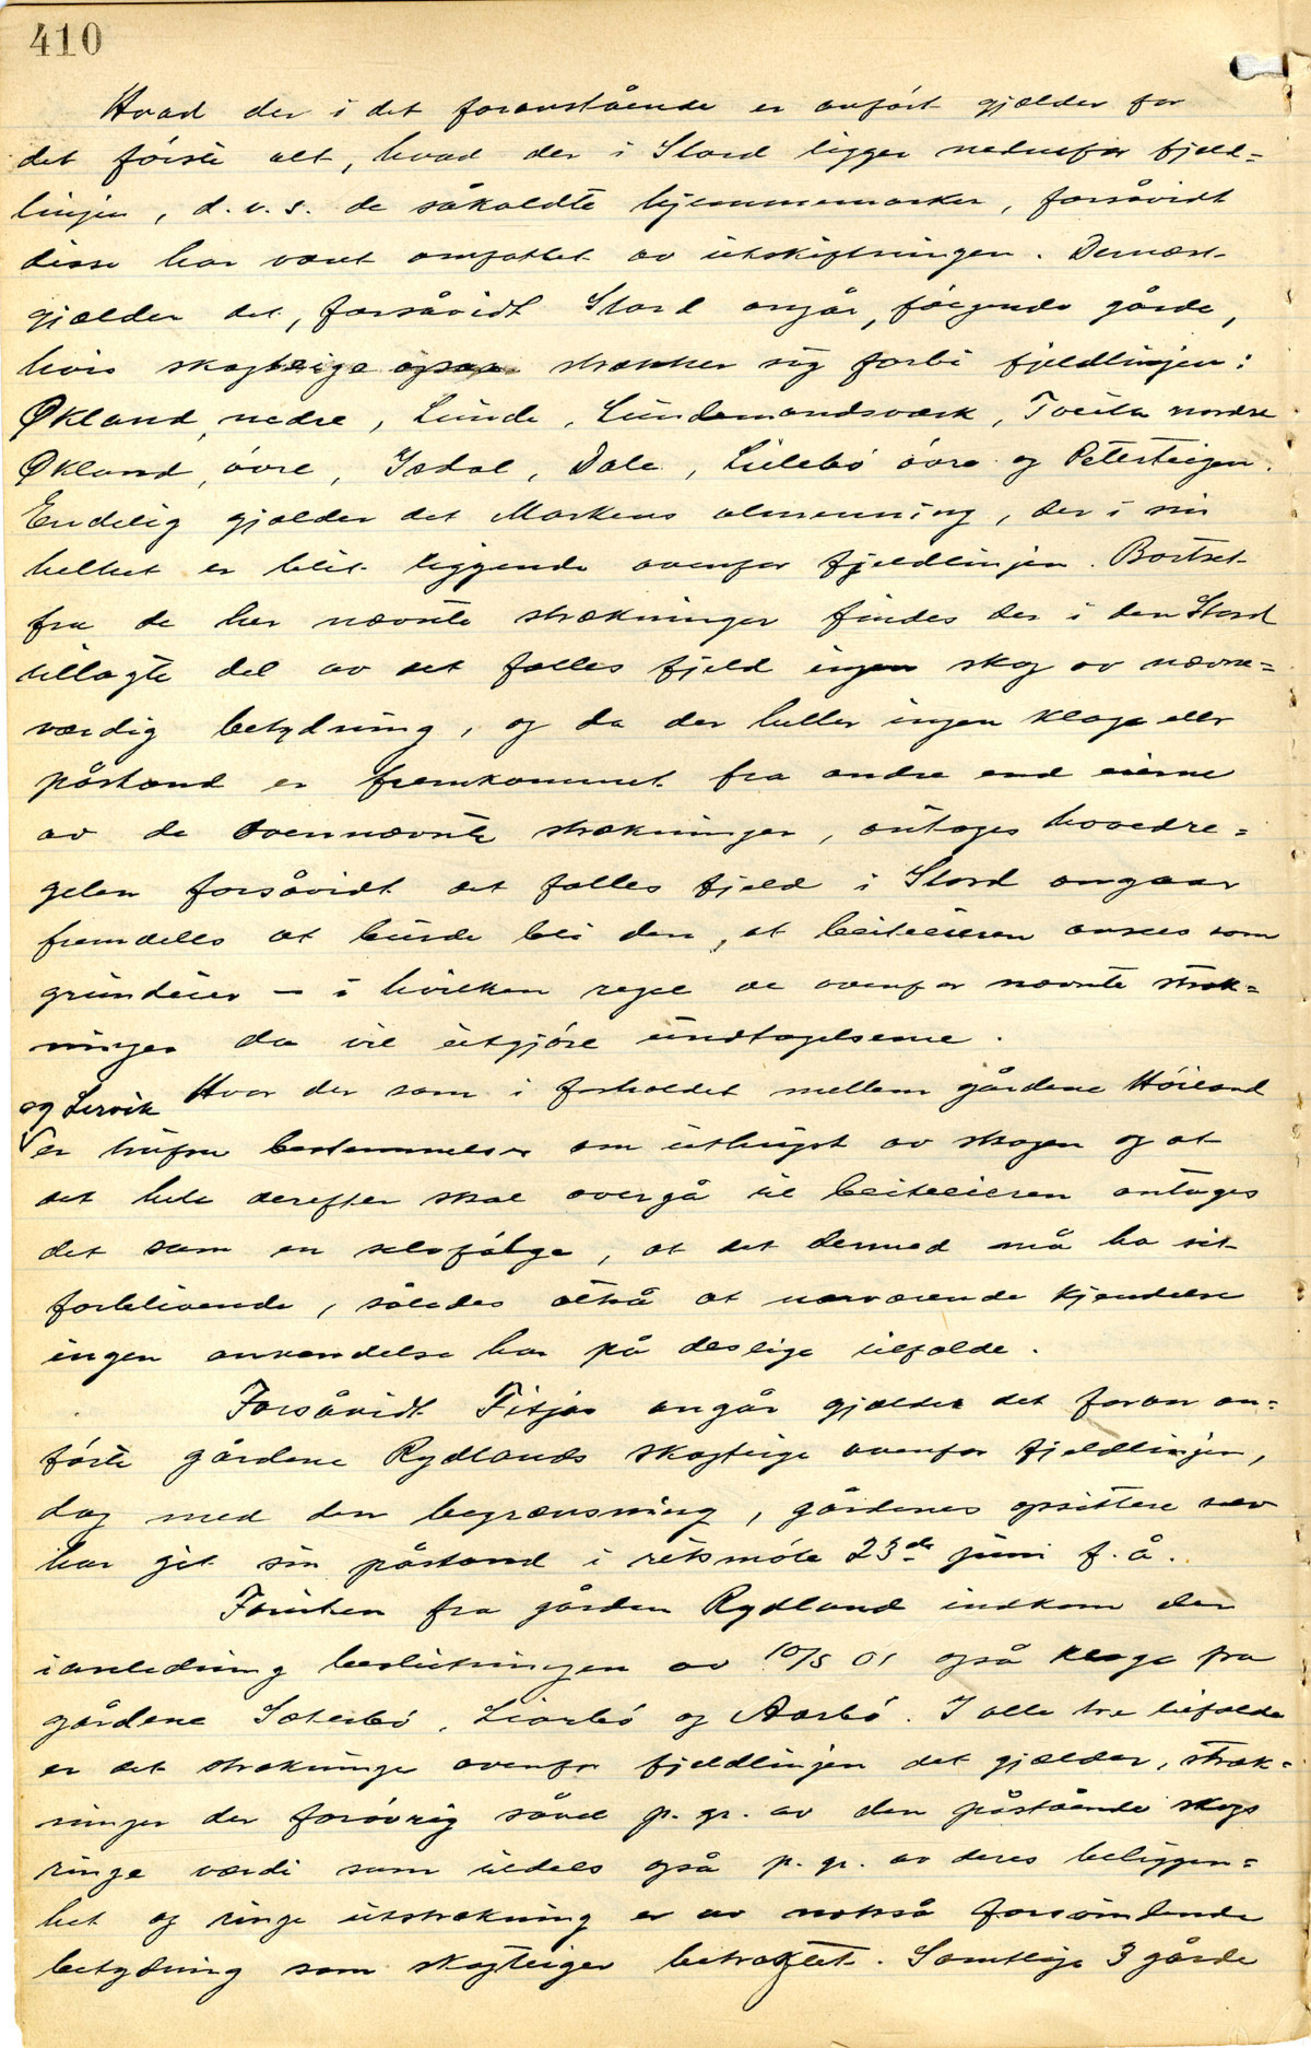 410
Hvad der i det foranstående er anført gjælder for
det første alt, hvad der i Stord ligger nedenfor fjeld=
linjen, d.v.s. de såkaldte hjemmemarker, forsåvidt
disse har været omfattet av utskiftningen. Dernæst
gjælder det, forsåvidt Stord angår, følgende gårde,
hvis skogteige ogsaa strækker sig forbi fjeldlinjen:
Økland, nedre, Lunde, Lundemandsværk, Tveita nordre
Økland, øvre, Isdal, Dale, Lillebø øvre og Petersteigen.
Endelig gjælder det Markens almenning, der i sin
helhet er blit liggende ovenfor fjeldlinjen. Bortset
fra de her nævnte strækninger findes der i den Stord
tillagte del av det fælles fjeld ingen skog av nævne=
værdig betydning, og da der heller ingen klage eller
påstand er fremkommet fra andre end eierne
av de ovennævnte strækninger, antages hovedre=
gelen forsåvidt det fælles fjeld i Stord angaar
fremdeles at burde bli den, at beiteeieren ansees som
grundeier - i hvilken regel de ovenfor nævnte stræk=
ninger da vil utgjøre undtagelserne.
Hvor der som i forholdet mellem gårdene Høiland
og Lervik
er truffen bestemmelser om uthugst av skogen og at
det hele derefter skal overgå til beiteeieren antages
det som en selvfølge, at det dermed må ha sit
forblivende, således altså at nærværende kjendelse
ingen anvendelse har på deslige tilfælde.
Forsåvidt Fitjar angår gjælder det foran an=
førte gårdene Rydlands skogteige ovenfor fjeldlinjen,
dog med den begrænsning, gårdenes opsittere selv
har git sin påstand i retsmøte 23de juni f.å.
Foruten fra gården Rydland indkom der
ianledning beslutningen av 10/5 01 også klage fra
gårdene Sæterbø, Liarbø og Aarbø. I alle tre tilfælde
er det strækninger ovenfor fjeldlinjen det gjælder, stræk=
ninger der forøvrig såvel p. gr. av den påstående skogs
ringe værdi som tildels også p. gr. av deres beliggen=
het og ringe utstrækning er av nokså forsvindende
betydning som skogteiger betraktet. Samtlige 3 gårde